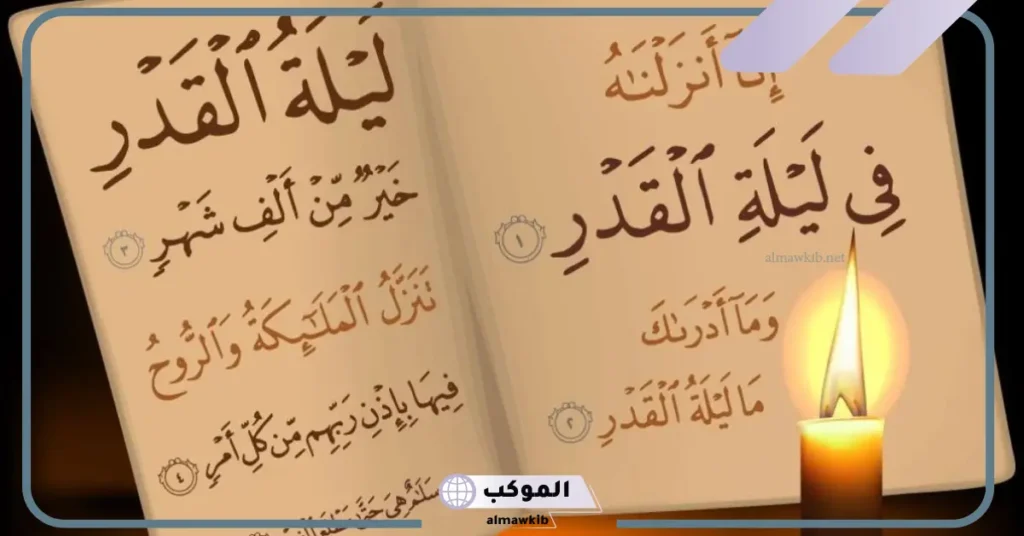 إِنَّآ أَنزَلْنَٰهُ
فِى لَيْلَةِ ٱلْقَدْرِ ١
almawkib.net
وَمَآ أَدْرَىٰكَ
مَا لَيْلَةُ ٱلْقَدْرِ ٢
لَيْلَةُ ٱلْقَدْرِ
خَيْرٌ مِّنْ أَلْفِ شَهْرٍ ٣
تَنَزَّلُ ٱلْمَلَٰٓئِكَةُ وَٱلرُّوحُ
فِيهَا بِإِذْنِ رَبِّهِم مِّن كُلِّ أَمْرٍ ٤
سَلَٰمٌ هِىَ حَتَّىٰ
الموكب
almawkib